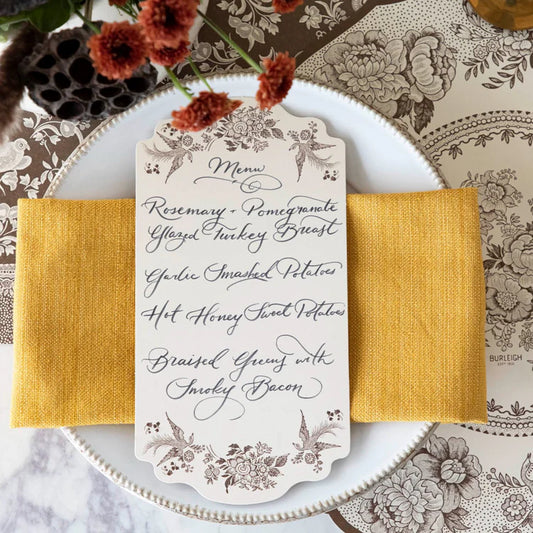 Menu
Rosemary + Pomegranate
Glazed Turkey Breast
Garlic Smashed Potatoes
Hot Honey Sweet Potatoes
Braised Greens with
Smoky Bacon
BURLEIGH